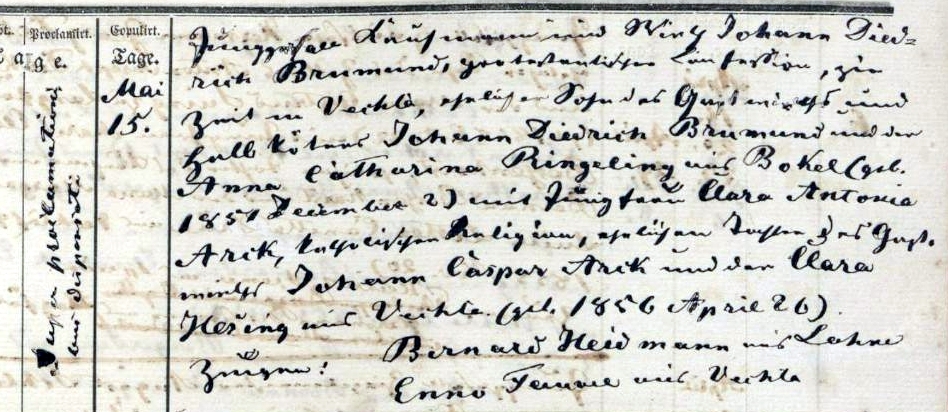 Proclamirt.
Copulirt.
Tage.
Tage.
Mai
15.
super proclamationi
bus dispensati
Junggeselle Kaufmann und Wirth Johann Died=
rich Brumund, protestantischer Confession, zur
Zeit in Vechta, ehelicher Sohn des Gastwirths und
Halbköters Johann Diedrich Brumund und der
Anna Catharina Ringeling aus Bokel (geb.
1851 December 2) mit Jungfrau Clara Antonia
Arck, katholischer Religion, ehelichen Tochter des Gast-
wirths Johann Caspar Arck und der Clara
Hesing aus Vechta (geb. 1856 April 26).
Zeugen: Bernard Heidmann aus Lohne
Enno aus Vechta